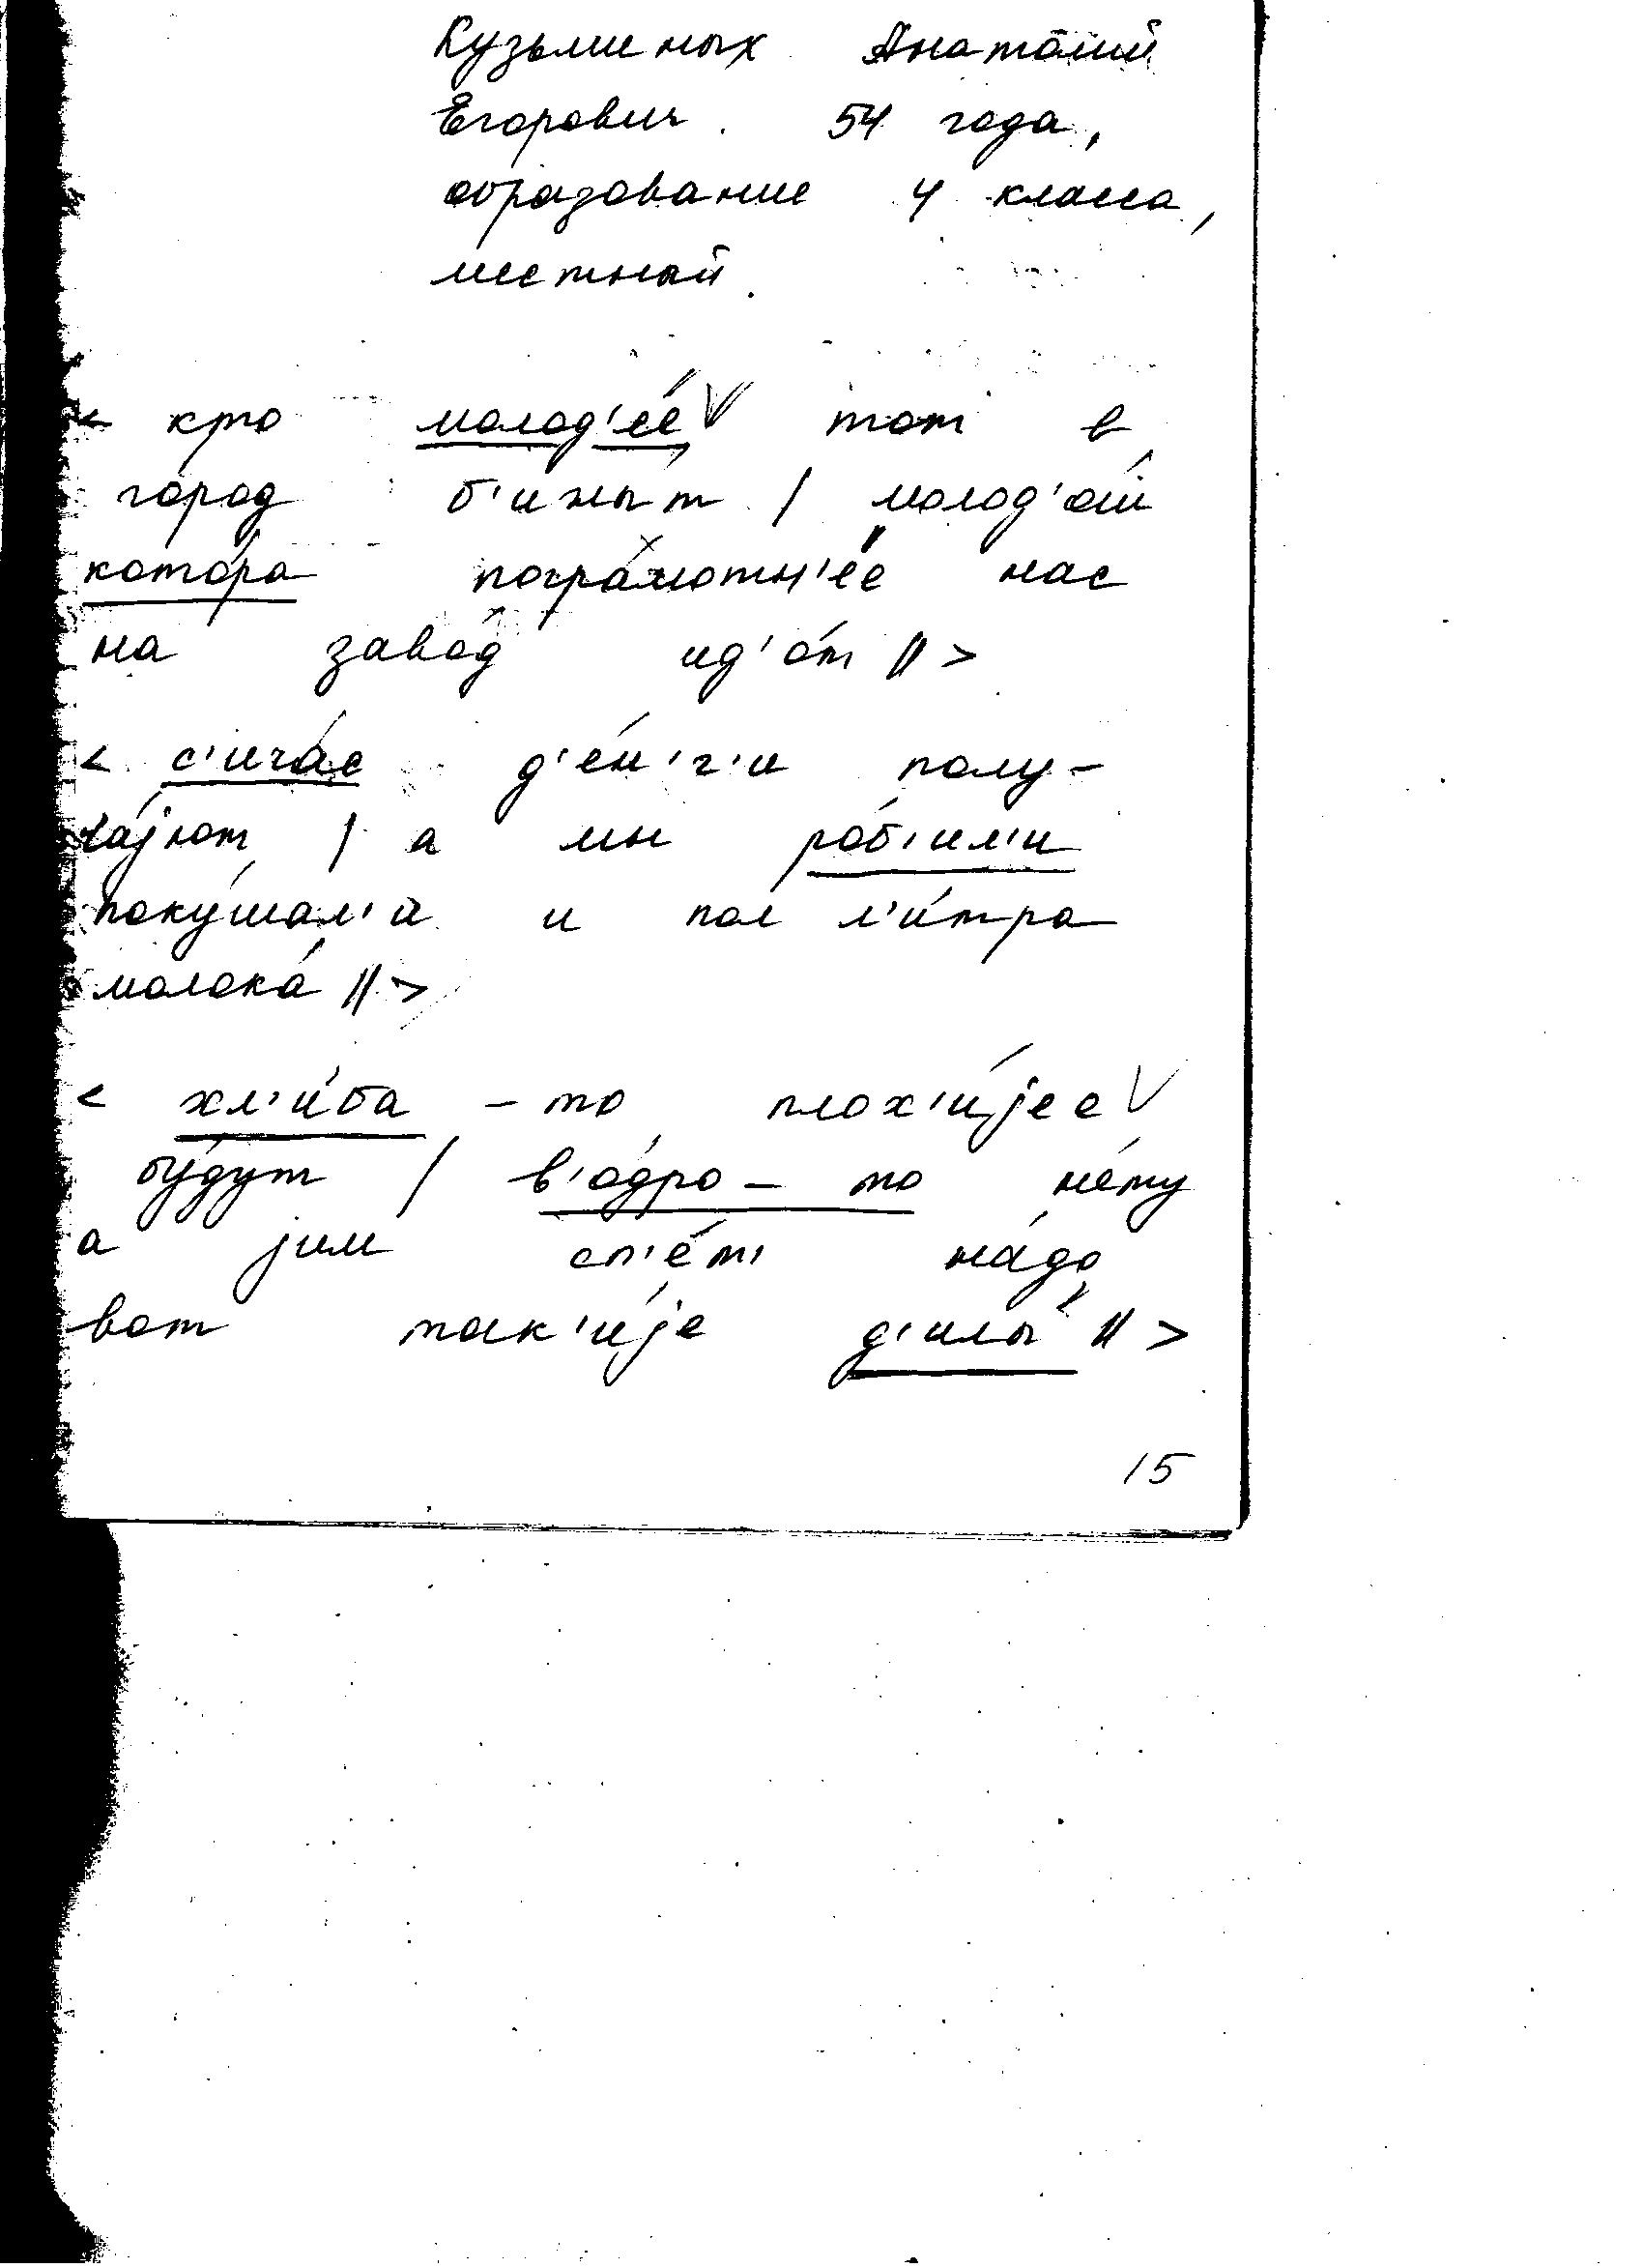 Кузьминых Анатолий
Егорович. 54 года,
образование 4 класса,
местный.
< кто молод'е́е тот в
го́род б'ижы́т / молод'о́ш
кото́ра погра́мотн'ее нас
на заво́д ид'о́т // >
< с'ича́с д'е́н'г'и полу-
ча́јют / а мы ро́б'ил'и
поку́шал'и и пол л'и́тра
молока́ // >
< хл'и́ба - то плох'и́јее
бу́дут / в'о́дро - то не́ту
а јим сп'е́т' на́до
вот так'и́је д'илы́ // >
15